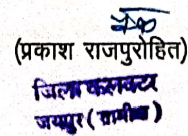 (प्रकाश राजपुरोहित)
जिला कलक्टर
जयपुर (ग्रामीण)